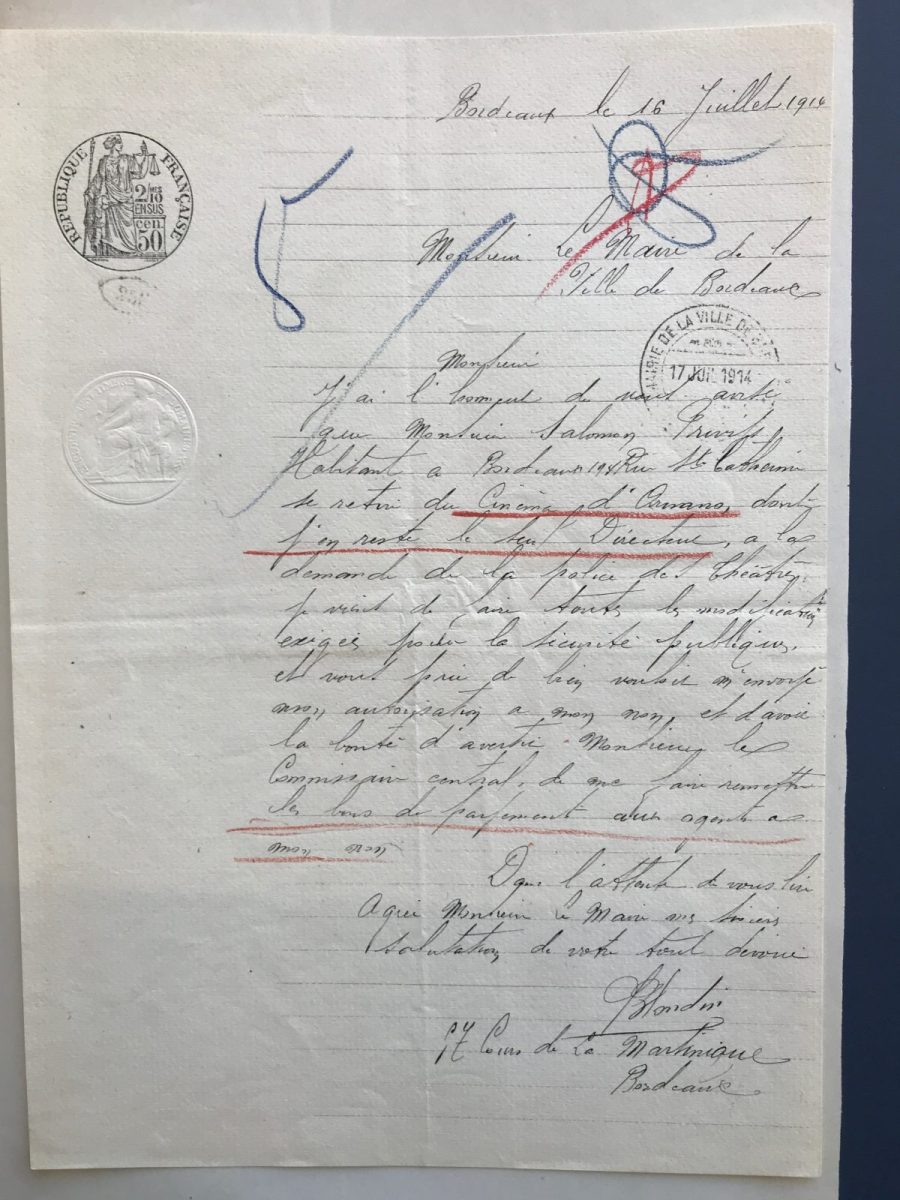 Bordeaux le 16 Juillet 1914
RÉPUBLIQUE FRANÇAISE
2/10
EN SUS
50 cen
5
Monsieur Le Maire de la
Ville de Bordeaux
MAIRIE DE LA VILLE DE
17 JUIL 1914
Monsieur
J'ai l'honneur de vous avisé
que Monsieur Salomon
Habitant a Bordeaux Rue Ste Catherine
se retire du Cinéma d'Ornano, dont
j'en reste le seul Directeur, a la
demande de la police des Théâtres
je viest de faire toutes les modifications
exigés pour la sécurité publique,
et vous prie de bien vouloir m'envoyé
mon autorisation a mon non, et d'avoir
la bonté d'avertir Monsieur le
Commissaire central, de me faire remettre
les bons de payement aux agents a
mon non
Dans l'attente de vous lire
Agrée Monsieur Le Maire mes sincères
salutation de votre tout devoué
Blondin
57 Cours de La Martinique
Bordeaux